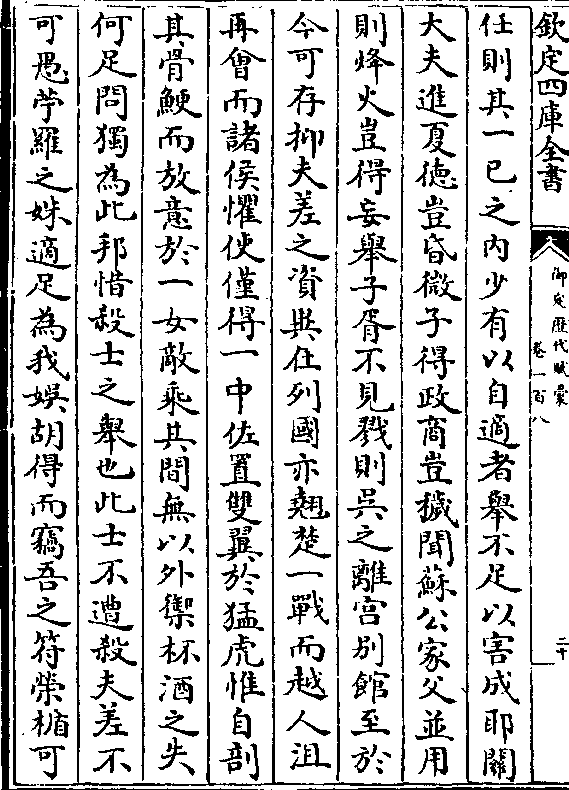 欽定四庫全書
御定歷代賦彙
卷一百八
二十
任則其一已之内少有以自適者舉不足以害成耶關
大夫進夏德豈昏微子得政商豈穢聞蘇公家父並用
則烽火豈得妄舉子胥不見戮則吳之離宮別館至於
今可存抑夫差之資與在列國亦翹楚一戰而越人沮
再會而諸侯懼使僅得一中佐置雙翼於猛虎惟自剖
其骨鯁而放意於一女敵乘其間無以外禦杯酒之失
何足問獨為此邦惜殺士之舉也此士不遭殺夫差不
可愚苧羅之姝適足為我娛胡得而竊吾之符榮楯可